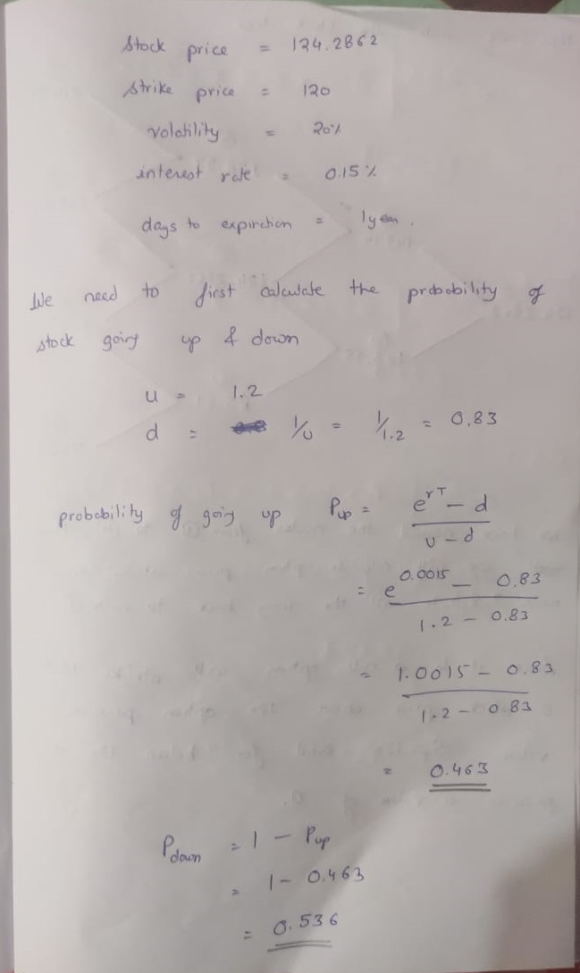 Stock price = 124.2862
Strike price = 120
volatility = 20%
interest rate = 0.15%
days to expirction = 1year.
We need to first calculate the probability of
stock going up & down
u = 1.2
d = 1/u = 1/1.2 = 0.83
probability of going up Pup = e^rT - d / u - d
= e^0.0015 - 0.83 / 1.2 - 0.83
= 1.0015 - 0.83 / 1.2 - 0.83
= 0.463
Pdown = 1 - Pup
= 1 - 0.463
= 0.536